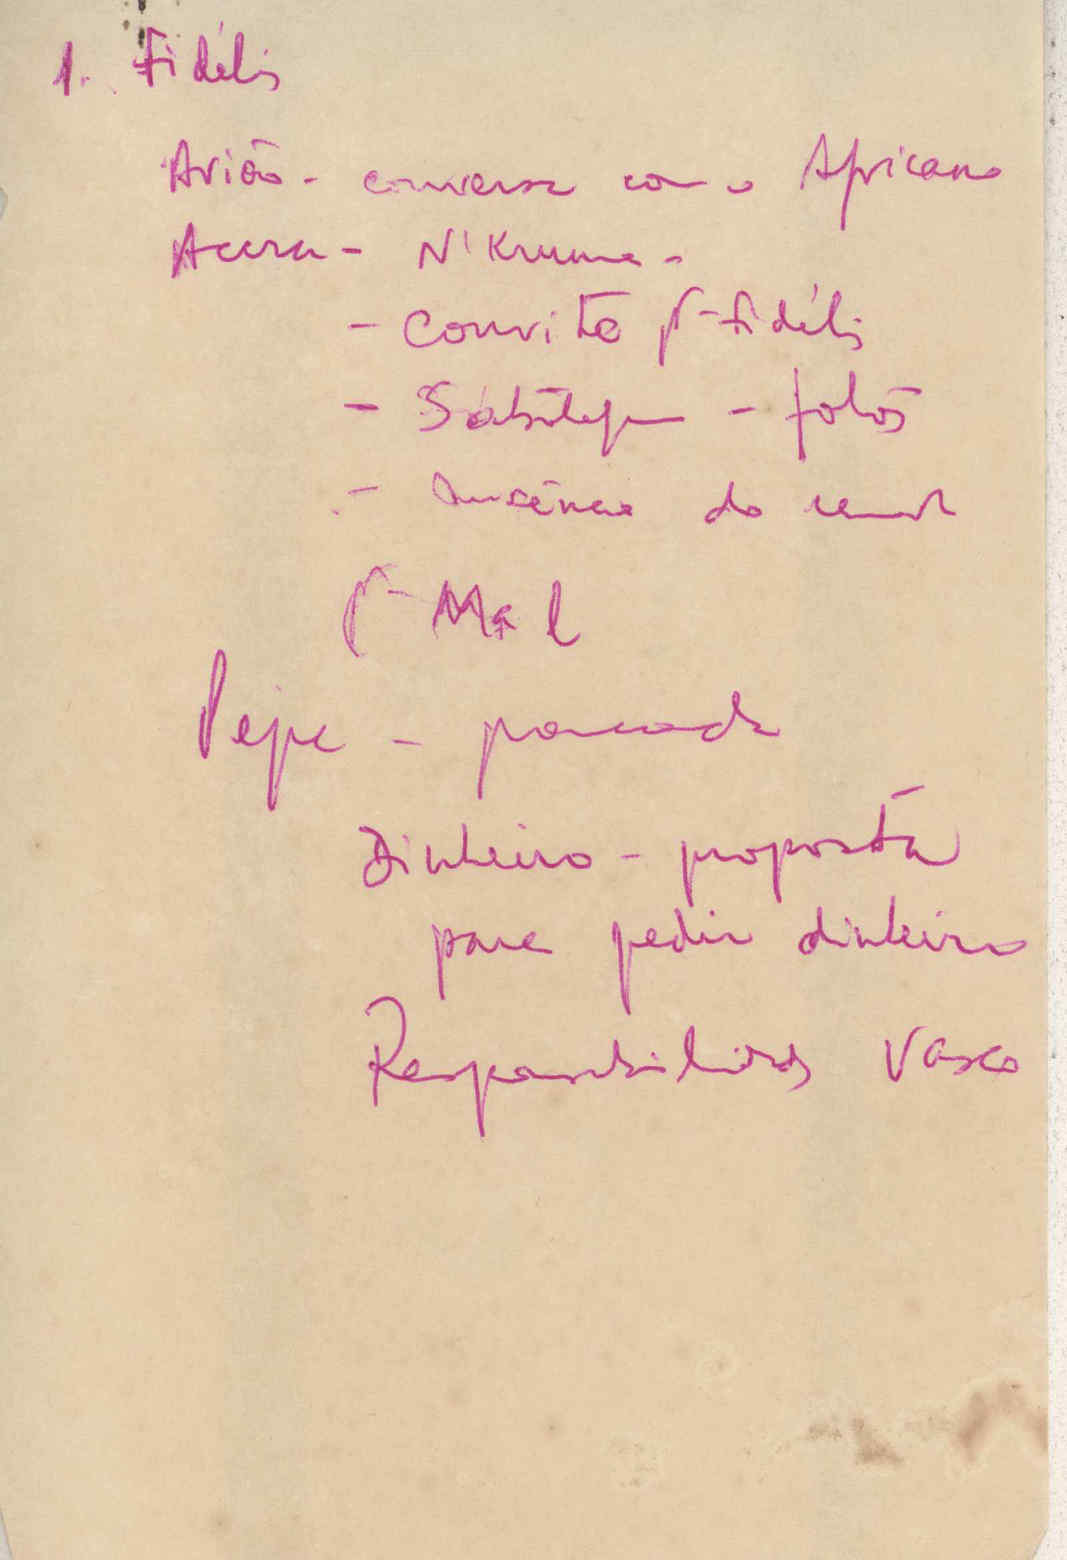 1. Fidélis
Avião - conversa com o Africano
Accra - N'Kruma -
- Convite p- Fidélis
- Sabotagem - fotos
- Ausência do
p- Mal
Pepe - pancada
Dinheiro - proposta
para pedir dinheiro
Responsabilidades Vasco